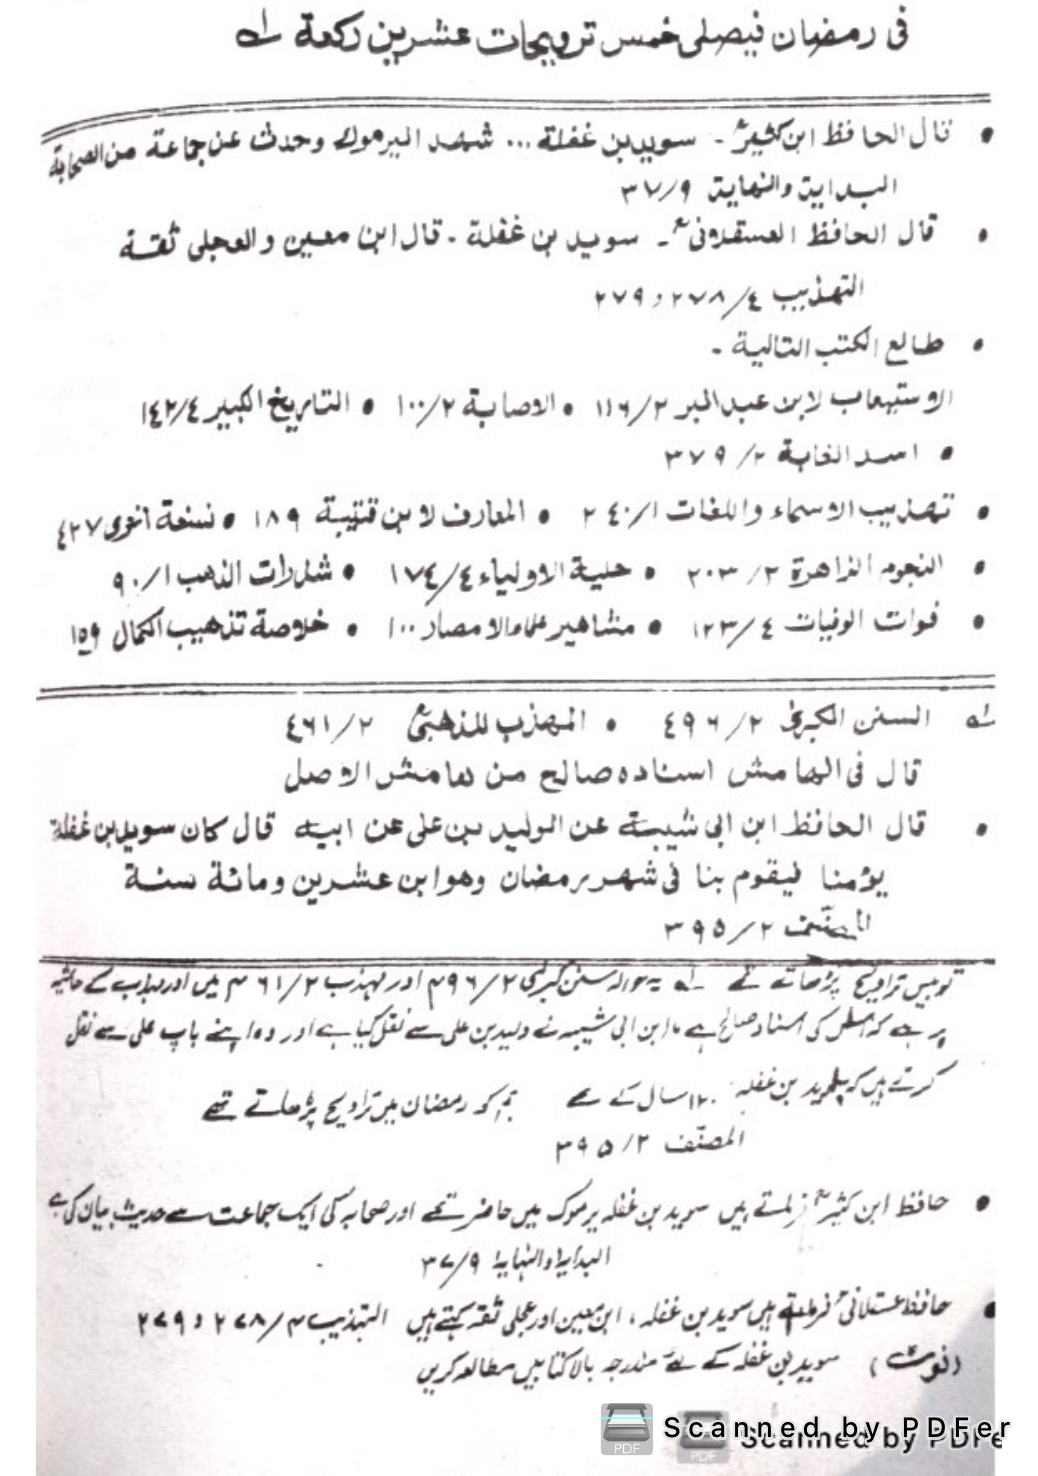 فى رمضان فيصلى خمس ترويحات عشرين ركعة لـه
• قال الحافظ ابن كثيرؒ - سويد بن غفلة ... شهد اليرموك وحدث عن جماعة من الصحابة
البداية والنهاية ٩/٣٧
• قال الحافظ العسقلانىؒ - سويد بن غفلة - قال ابن معين والعجلى ثقة
التهذيب ٤/٢٧٨ و ٢٧٩
• طالع الكتب التالية -
الاستيعاب لابن عبد البر ٢/١١٦ • الاصابة ٢/١٠٠ • التاريخ الكبير ٤/١٤٢
• اسد الغابة ٢/٣٧٩
• تهذيب الاسماء واللغات ١/٢٤٠ • المعارف لابن قتيبة ١٨٩ • نسخة اخرى ٤٢٧
• النجوم الزاهرة ٢/٢٠٣ • حلية الاولياء ٤/١٧٤ • شذرات الذهب ١/٩٠
• فوات الوفيات ٤/١٢٣ • مشاهير علماء الامصار ١٠٠ • خلاصة تذهيب الكمال ١٥٩
لـه السنن الكبرىٰ ٢/٤٩٦ • المهذب للذهبىؒ ٢/٤٦١
قال فى الهامش اسناده صالح من هامش الاصل
• قال الحافظ ابن ابى شيبة عن الوليد بن على عن ابيه قال كان سويد بن غفلة
يؤمنا فيقوم بنا فى شهر رمضان وهو ابن عشرين ومائة سنة
المصنّف ٢/٣٩٥
تو بیس تراویح پڑھاتے تھے لـه یہ حوالہ سنن کبریٰ ٢/٤٩٦ اور مہذب ٢/٤٦١ میں اور مہذب کے حاشیہ
پر ہے کہ اصل کی اسناد صالح ہے ، ابن ابی شیبہ نے ولید بن علی سے نقل کیا ہے اور وہ اپنے باپ علی سے نقل
کرتے ہیں کہ سوید بن غفلہ ١٢٠ سال کے تھے ہم کو رمضان میں تراویح پڑھاتے تھے
المصنّف ٢/٣٩٥
• حافظ ابن کثیرؒ فرماتے ہیں سوید بن غفلہ یرموک میں حاضر تھے اور صحابہ کی ایک جماعت سے حدیث بیان کی ہے
البدایہ والنہایہ ٩/٣٧
• حافظ عسقلانیؒ فرماتے ہیں سوید بن غفلہ ، ابن معین اور عجلی ثقہ کہتے ہیں التہذیب ٤/٢٧٨ و ٢٧٩
(نوٹ) سوید بن غفلہ کے لئے مندرجہ بالا کتابیں مطالعہ کریں
Scanned by PDFer
Scanned by PDFe